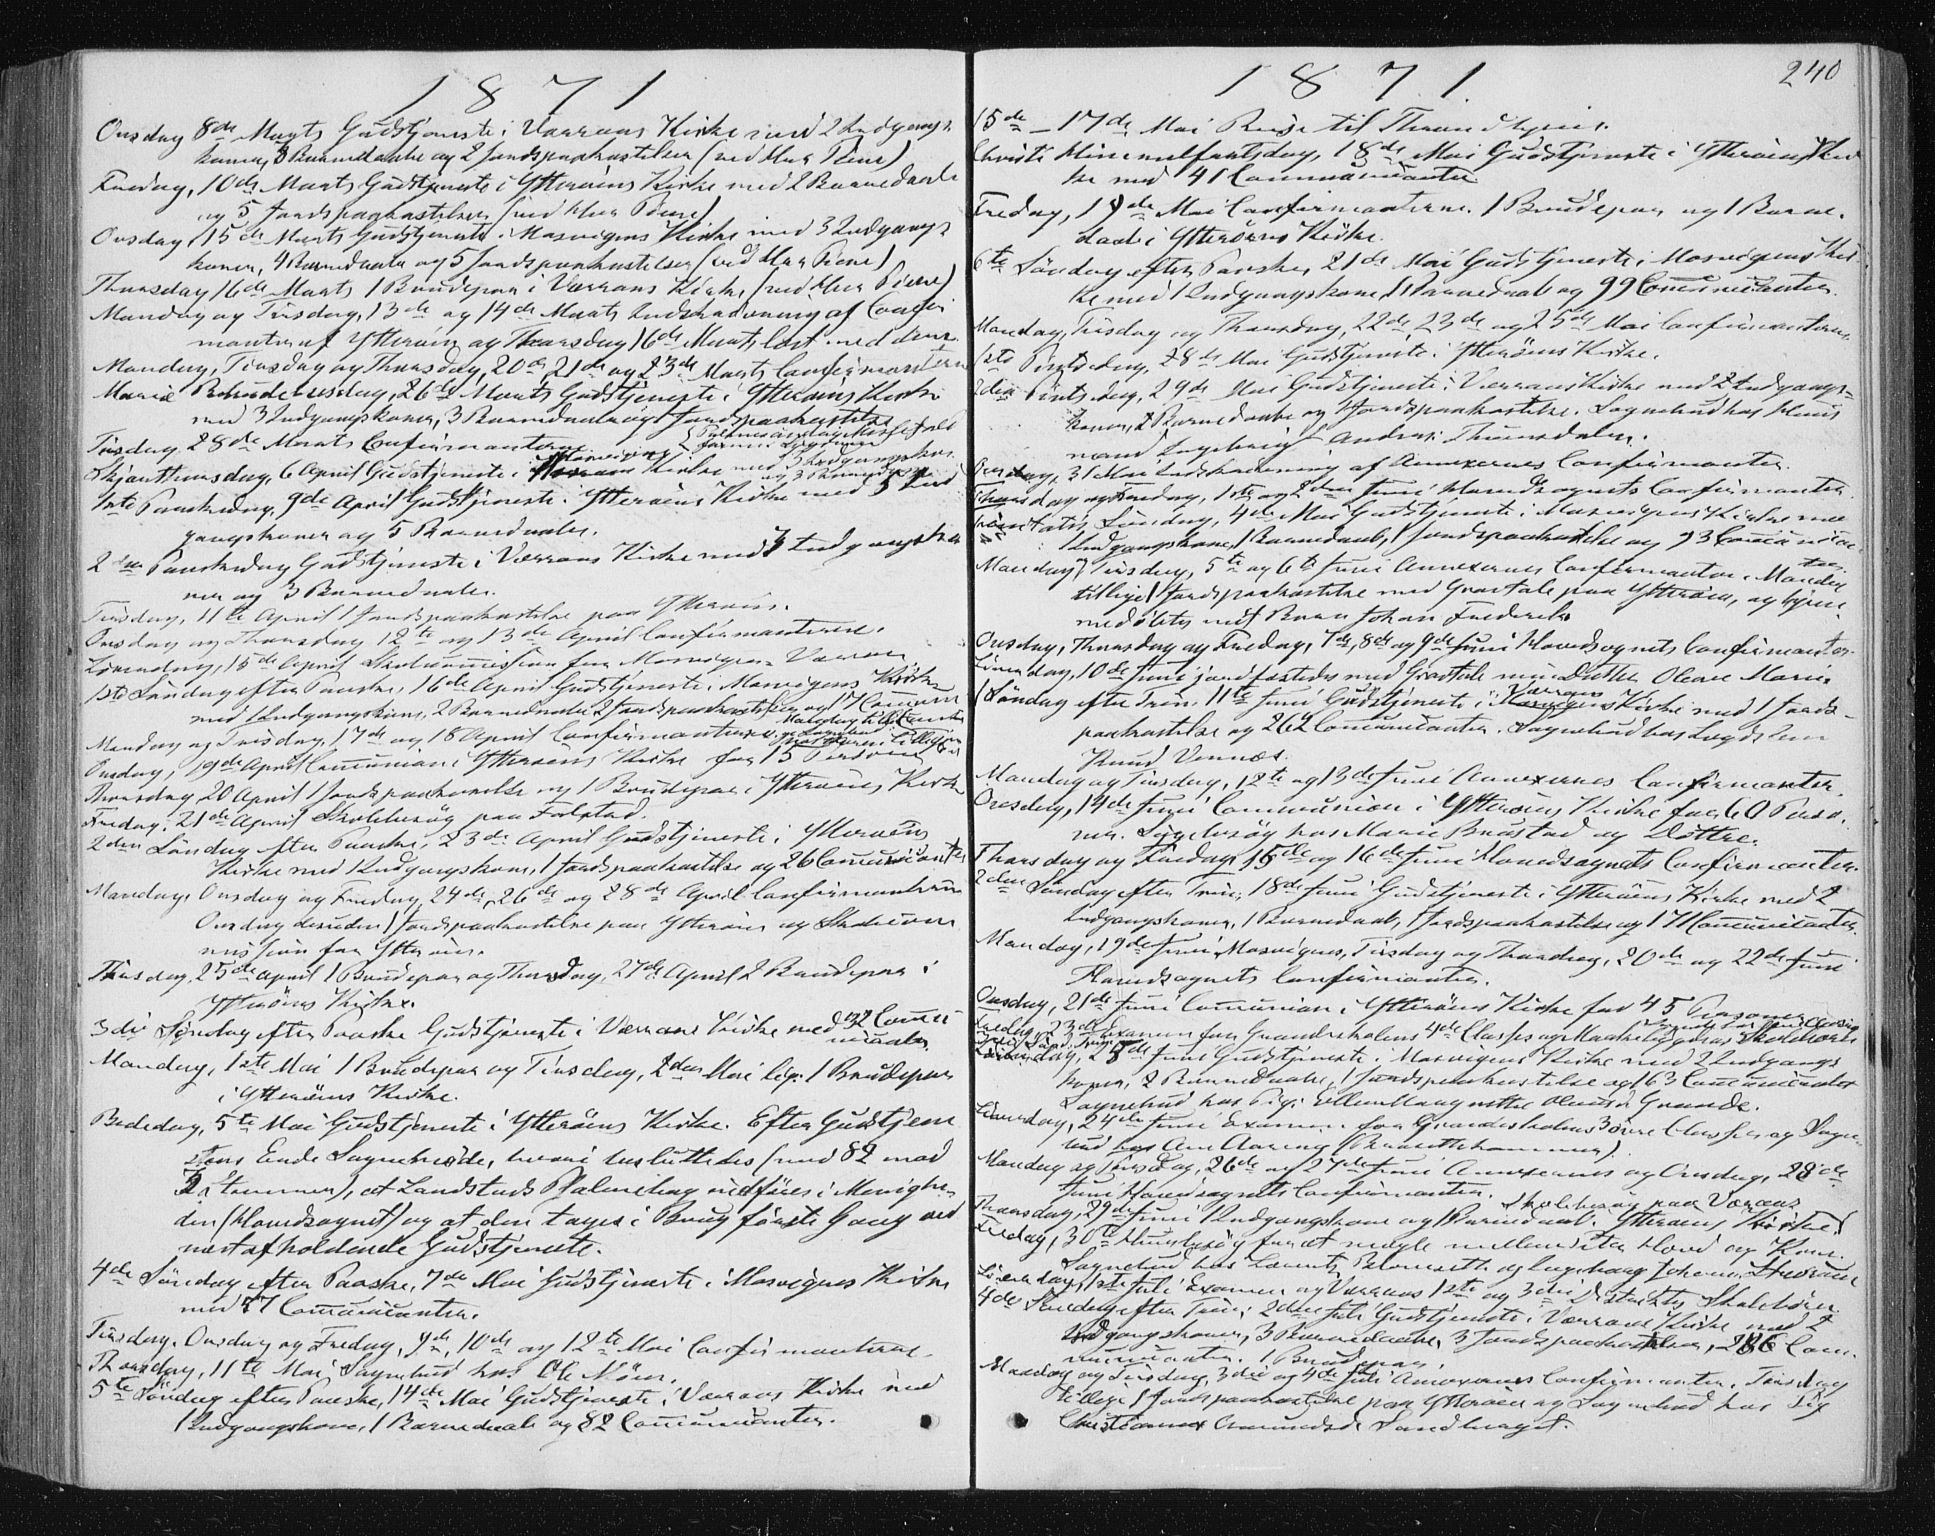 1871
Onsdag 8de Marts Gudstjeneste i Værrans Kirke med 2 Indgangs-
koner, 3 Barnedaabe og 2 Jordspaakastelser (ved Herr Piene)
Fredag, 10de Marts Gudstjeneste i Ytterøens Kirke med 2 Barnedaabe
og 5 Jordspaakastelser (ved Herr Piene)
Onsdag 15de Marts Gudstjeneste i Mosvigens Kirke med 3 Indgangs-
koner, 4 Barnedaabe og 5 Jordspaakastelser (ved Herr Piene)
Thorsdag 16de Marts 1 Brudepar i Værrans Kirke (ved Herr Piene)
Mandag og Tirsdag, 13de og 14de Marts Indskrivning af Confir
manter af Ytterøen og Thorsdag 16de Marts læst med dem.
Mandag, Tirsdag og Thorsdag, 20de, 21de og 23de Marts Confirmanterne
Mariæ Bebudelsesdag, 26de Marts Gudstjeneste i Ytterøens Kirke
med 3 Indgangskoner, 3 Barnedaabe og 1 Jordspaakastelse
Tirsdag, 28de Marts Confirmanterne
Skjærthorsdag, 6 April Gudstjeneste i Mosvigens Kirke med 3 Indgangsko
og 3 Barnedaabe
1ste Paaskedag, 9de April Gudstjeneste i Ytterøens Kirke med 5 Ind
gangskoner og 5 Barnedaabe.
2den Paaskedag Gudstjeneste i Værrans Kirke med 3 Indgangsko
ner og 3 Barnedaabe.
Tirsdag, 11te April 1 Jordspaakastelse paa Ytterøen.
Onsdag og Thorsdag 12te og 13de April Confirmanterne.
Løverdag, 15de April Skolecommission for Mosvigen & Værran
1ste Søndag efter Paaske, 16de April Gudstjeneste i Mosvigens Kirke
med 1 Indgangskone, 2 Barnedaabe 2 Jordspaakastelser og 17 Commun
Mandag og Tirsdag, 17de og 18 April Confirmanterne
Onsdag, 19de April Communion i Ytterøens Kirke for 15 Personer
Thorsdag 20 April 1 Jordspaakastelse og 1 Brudepar i Ytterøens Kirke
Fredag, 21de April Skolebesøg paa Falstad.
2den Søndag efter Paaske, 23de April Gudstjeneste i Ytterøens
Kirke med 1 Indgangskone, 1 Jordspaakastelse og 26 Communicanter
Mandag, Onsdag og Fredag, 24de, 26de og 28de April Confirmanterne
Onsdag desuden 1 Jordspaakastelse paa Ytterøen og Skolecom
mission for Ytterøen.
Tirsdag 25de April 1 Brudepar og Thorsdag, 27de April 2 Brudepar i
Ytterøens Kirke.
3die Søndag efter Paaske Gudstjeneste i Værrans Kirke med 32 Commu
nicanter
Mandag, 1ste Mai 1 Brudepar og Tirsdag, 2den Mai lig. 1 Brudepar
i Ytterøens Kirke.
Bededag, 5te Mai Gudstjeneste i Ytterøens Kirke. Efter Gudstjene
stens Ende Sognemøde, hvori besluttedes (med 82 mod
2 Stemmer), at Landstads Psalmebog indføres i Menighe-
den (Hovedsognet) og at den tages i Brug første Gang ved
næst afholdende Gudstjeneste.
4de Søndag efter Paaske, 7de Mai Gudstjeneste i Mosvigens Kirke
med 47 Communicanter.
Tirsdag, Onsdag og Fredag, 9de, 10de og 12te Mai Confirmanterne.
Thorsdag, 11te Mai Sognebud hos Ole
5te Søndag efter Paaske, 14de Mai Gudstjeneste i Værrans Kirke med
1 Indgangskone, 1 Barnedaab og 82 Communicanter.
1871.
240
15de–17de Mai Reise til Throndhjem.
Christi Himmelfartsdag, 18de Mai Gudstjeneste i Ytterøens Kir
ke med 41 Communicanter
Fredag, 19de Mai Confirmanterne. 1 Brudepar og 1 Barne-
daab i Ytterøens Kirke.
6te Søndag efter Paaske, 21de Mai Gudstjeneste i Mosvigens Kir
ke med 1 Indgangskone, 1 Barnedaab og 99 Communicanter.
Mandag, Tirsdag og Thorsdag, 22de, 23de og 25de Mai Confirmanterne.
1ste Pintsedag, 28de Mai Gudstjeneste i Ytterøens Kirke.
2den Pintsedag, 29de Mai Gudstjeneste i Værrans Kirke med 2 Indgangs-
koner, 2 Barnedaabe og 1 Jordspaakastelse. Sognebud hos Huus
mand Ingebrigt Andreas Thomsdalen.
Onsdag, 31 Mai Indskrivning af Annexernes Confirmanter.
Thorsdag og Fredag, 1ste og 2den Juni Hovedsognets Confirmanter
Trinitatis Søndag, 4de Mai Gudstjeneste i Mosvigens Kirke med
1 Indgangskone, 1 Barnedaab, 1 Jordspaakastelse og 93 Communican
ter
Mandag, Tirsdag, 5te og 6te Juni Annexernes Confirmanter. Mandag
tillige 1 Jordspaakastelse med Gravtale paa Ytterøen, og hjem
medøbtes mit Barn Johan Frederik
Onsdag, Thorsdag og Fredag, 7de, 8de og 9de Juni Hovedsognets Confirmanter.
Løverdag, 10de Juni jordfæstedes med Gravtale min Datter Oleave Marie.
1 Søndag efter Trin. 11te Juni Gudstjeneste i Værrans Kirke med 1 Jords-
paakastelse og 262 Communicanter. Sognebud hos Lægdslem
Knud Vennes.
Mandag og Tirsdag, 12te og 13de Juni Annexernes Confirmanter.
Onsdag, 14de Juni Communion i Ytterøens Kirke for 60 Perso-
ner. Sygebesøg hos Marie Brustad og Døttre.
Thorsdag og Fredag 15de og 16de Juni Hovedsognets Confirmanter.
2den Søndag efter Trin, 18de Juni Gudstjeneste i Ytterøens Kirke med 2
Indgangskoner, 1 Barnedaab, 1 Jordspaakastelse og 171 Communicanter.
Mandag, 19de Juni Mosvigens, Tirsdag og Thorsdag, 20de og 22de Juni
Hovedsognets Confirmanter.
Onsdag, 21de Juni Communion i Ytterøens Kirke for 45 Personer
Fredag, 23de Examen for Grandeskolens 4de Classe og
25de Juni Gudstjeneste i Mosvigens Kirke med 2 Indgangs
koner, 2 Barnedaabe, 1 Jordspaakastelse og 163 Communicanter
Sognebud hos Pige Ellen Margrethe Olausd. Grande.
Løverdag, 24de Juni Examen for Grandeskolens 3 øvre Classer og Sogne-
bud hos Ane Aarting
Mandag og Tirsdag, 26de og 27de Juni Annexernes og Onsdag, 28de
Juni Hovedsognets Confirmanter. Skolebesøg paa Værran
Thorsdag, 29de Juni 1 Indgangskone og 1 Barnedaab i Ytterøens Kirke.
Fredag, 30te Huusbesøg for at mægle mellem
Sognebud hos
Løverdag 1ste Juli Examen og Værrans 1ste og 3die Districts Skolebørn
4de Søndag efter Trin, 2den Juli Gudstjeneste i Værrans Kirke med 2
Indgangskoner, 3 Barnedaabe, 3 Jordspaakastelser, 286 Com-
municanter. 1 Brudepar.
Mandag og Tirsdag, 3die og 4de Juli Annexernes Confirmanter. Tirsdag
tillige 1 Jordspaakastelse paa Ytterøen og Sognebud hos Pige
Christianna Amundsd. Sandhaugst.